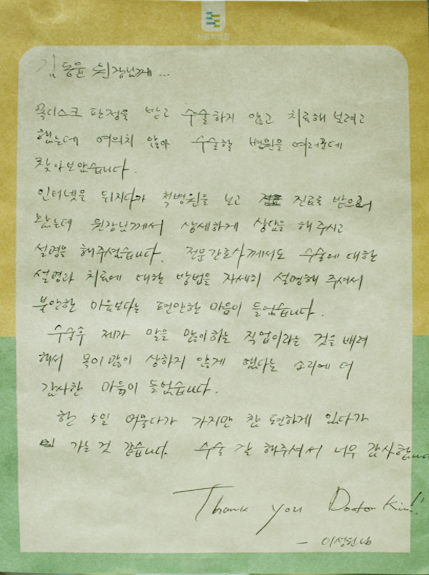 김동윤 원장님께...
목디스크 판정을 받고 수술하지 않고 치료해 보려고
했는데 여의치 않아 수술할 병원을 여러군데
찾아보았습니다.
인터넷을 뒤지다가 척병원을 보고 진료를 받으러
왔는데 원장님께서 상세하게 상담을 해주시고
설명을 해주셨습니다. 전문간호사께서도 수술에 대한
설명과 치료에 대한 방법을 자세히 설명해 주셔서
불안한 마음보다는 편안한 마음이 들었습니다.
수술후 제가 말을 많이하는 직업이라는 것을 배려
해서 목이 많이 상하지 않게 했다는 소리에 더
감사한 마음이 들었습니다.
한 5일 머물다가 가지만 참 편하게 있다가
가는 것 같습니다. 수술 잘 해주셔서 너무 감사합니다
Thank you Doctor Kim!!